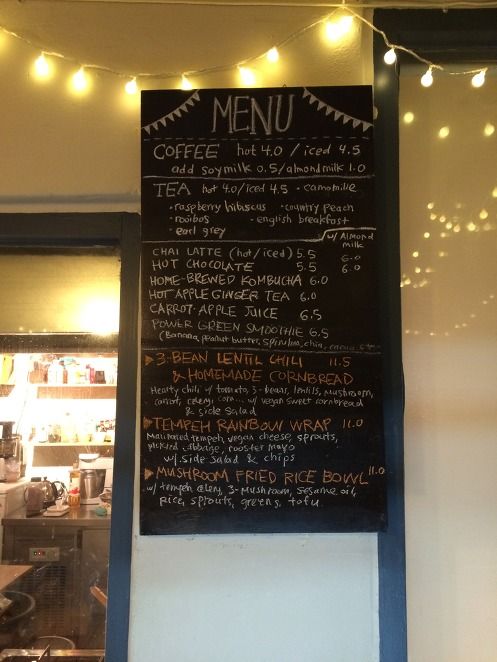 MENU
COFFEE hot 4.0 / iced 4.5
add soymilk 0.5/almondmilk 1.0
TEA hot 4.0/iced 4.5 • camomille
• raspberry hibiscus • country peach
• rooibos • english breakfast
• earl grey
w/ Almond milk
CHAI LATTE (hot/iced) 5.5 6.0
HOT CHOCOLATE 5.5 6.0
HOME-BREWED KOMBUCHA 6.0
HOT APPLE GINGER TEA 6.0
CARROT APPLE JUICE 6.5
POWER GREEN SMOOTHIE 6.5
(Banana, peanut butter, spirulina, chia,
3-BEAN LENTIL CHILI 11.5
& HOMEMADE CORNBREAD
Hearty chili w/ tomato, 3-beans, lentils, mushroom,
carrot, celery, corn... w/ vegan sweet cornbread
& side salad
TEMPEH RAINBOW WRAP 11.0
Marinated tempeh, vegan cheese, sprouts,
pickled cabbage, rooster mayo
w/ side salad & chips
MUSHROOM FRIED RICE BOWL 11.0
w/ tempeh, celery, 3-mushroom, sesame oil,
rice, sprouts, greens, tofu